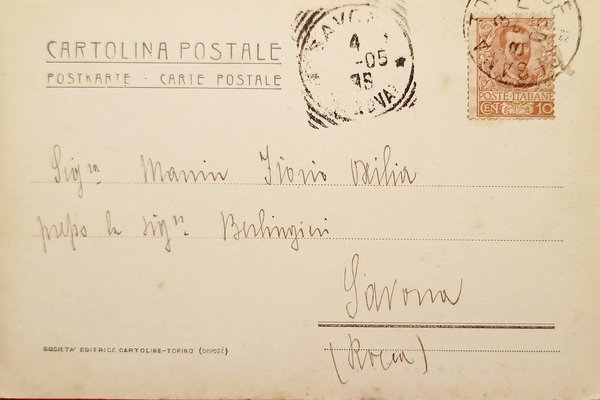 CARTOLINA POSTALE
POSTKARTE - CARTE POSTALE
SAVONA
4
-05
*
POSTE·ITALIANE
CEN. 10
Sigra Manin
presso la sigra Berlingieri
Savona
(Rocca)
SOCIETA' EDITRICE CARTOLINE-TORINO (DEPOSÉ)